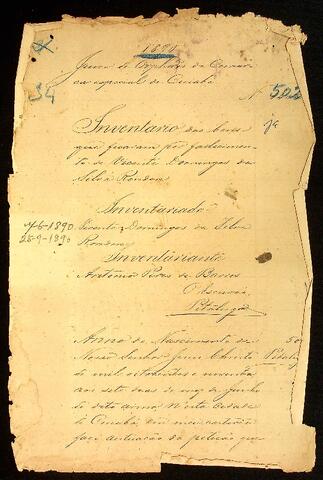 1890
Juizo de Orphãos da Comar
ca especial de Cuiabá
34
Nº 502
Inventario dos bens
que ficaram por fallecimen
to de Vicente Domingos da
Silva Rondon
Inventariado
7-6-1890
Vicente Domingos da Silva
25-9-1890
Rondon
Inventariante
Antonio Pires de Barros
O Escrivão
Anno do Nascimento de
Nosso Senhor Jesus Christo
de mil oitocentos e noventa
aos sete dias do mez de Junho
do dito anno n'esta cidade
de Cuiabá, em meu cartorio
faço autuação da petição que